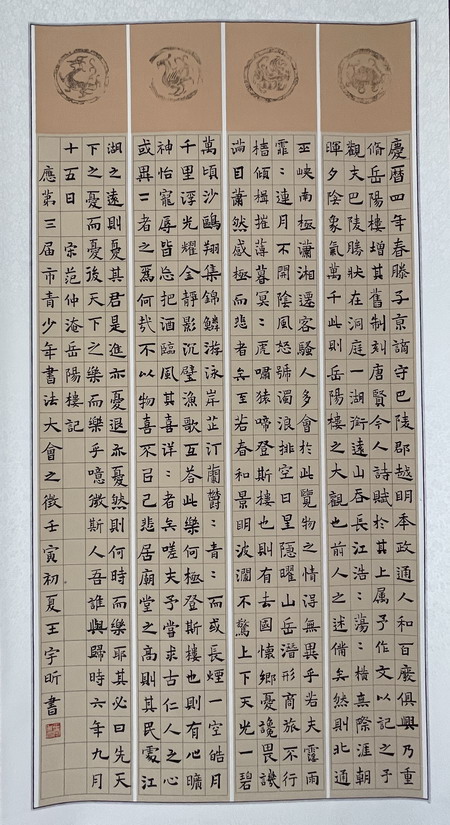 慶曆四年春滕子京謫守巴陵郡越明年政通人和百廢俱興乃重
脩岳陽樓增其舊制刻唐賢今人詩賦於其上属予作文以記之予
觀夫巴陵勝状在洞庭一湖銜遠山吞長江浩〻蕩〻橫無際涯朝
暉夕陰象氣萬千此則岳陽樓之大觀也前人之述備矣然則北通
巫峽南極瀟湘遷客騷人多會於此覽物之情得無異乎若夫霪雨
霏〻連月不開陰風怒號濁浪排空日星隱曜山岳潛形商旅不行
檣傾楫摧薄暮冥〻虎嘯猿啼登斯樓也則有去國懷鄉憂讒畏譏
滿目蕭然感極而悲者矣至若春和景明波瀾不驚上下天光一碧
萬頃沙鷗翔集錦鱗游泳岸芷汀蘭鬱〻青〻而或長煙一空皓月
千里浮光耀金靜影沉璧漁歌互答此樂何極登斯樓也則有心曠
神怡寵辱皆忘把酒臨風其喜洋〻者矣嗟夫予嘗求古仁人之心
或異二者之為何哉不以物喜不以己悲居廟堂之高則其民處江
湖之遠則憂其君是進亦憂退亦憂然則何時而樂耶其必曰先天
下之憂而憂後天下之樂而樂乎噫微斯人吾誰與歸時六年九月
十五日 宋范仲淹岳陽樓記
應第三届市青少年書法大會之徵壬寅初夏王宇昕書